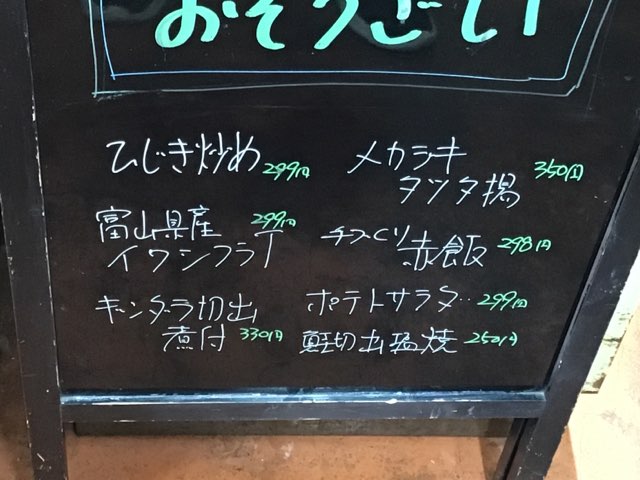 おそうざい
ひじき炒め 299円
メカジキ
タツタ揚 350円
富山県産 299円
イワシフライ
手づくり
赤飯 298円
ギンダラ切出
煮付 330円
ポテトサラダ 299円
切出塩焼 250円